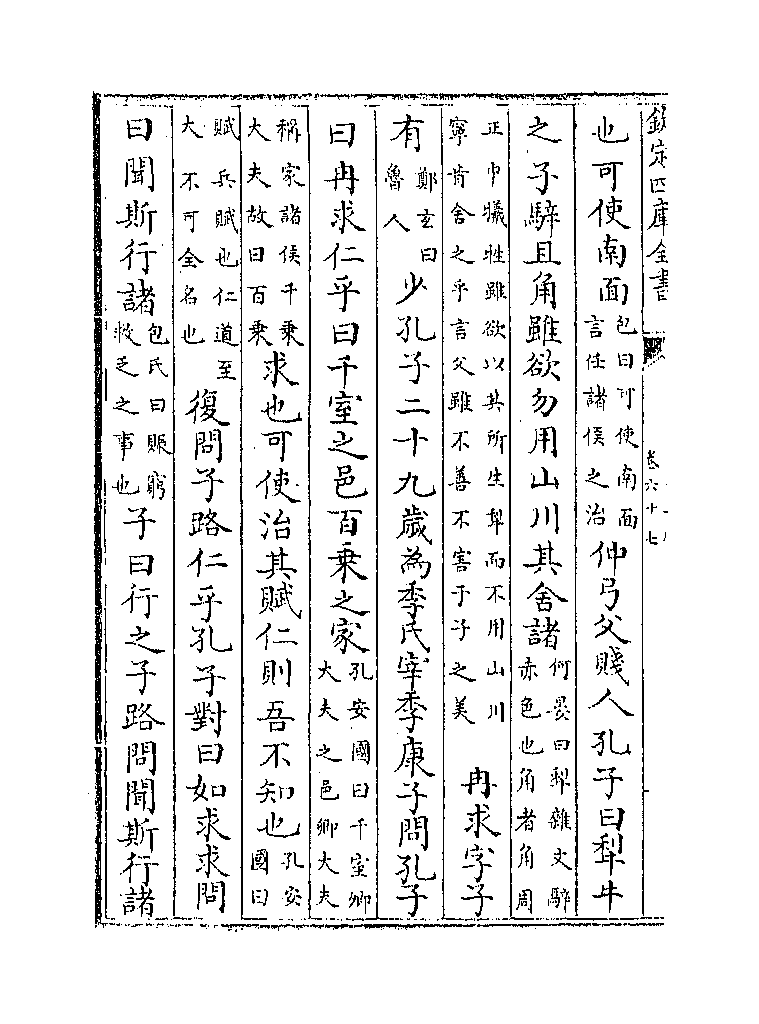 欽定四庫全書
卷六十七
也可使南面包曰可使南面言任諸侯之治仲弓父賤人孔子曰犁牛
之子騂且角雖欲勿用山川其舍諸何晏曰犁雜文騂赤色也角者角周
正中犧牲雖欲以其所生犁而不用山川寧肯舍之乎言父雖不善不害于子之美冉求字子
有鄭玄曰魯人少孔子二十九歲為季氏宰季康子問孔子
曰冉求仁乎曰千室之邑百乘之家孔安國曰千室卿大夫之邑卿大夫
稱家諸侯千乘大夫故曰百乘求也可使治其賦仁則吾不知也孔安國曰
賦兵賦也仁道至大不可全名也復問子路仁乎孔子對曰如求求問
曰聞斯行諸包氏曰賑窮救乏之事也子曰行之子路問聞斯行諸